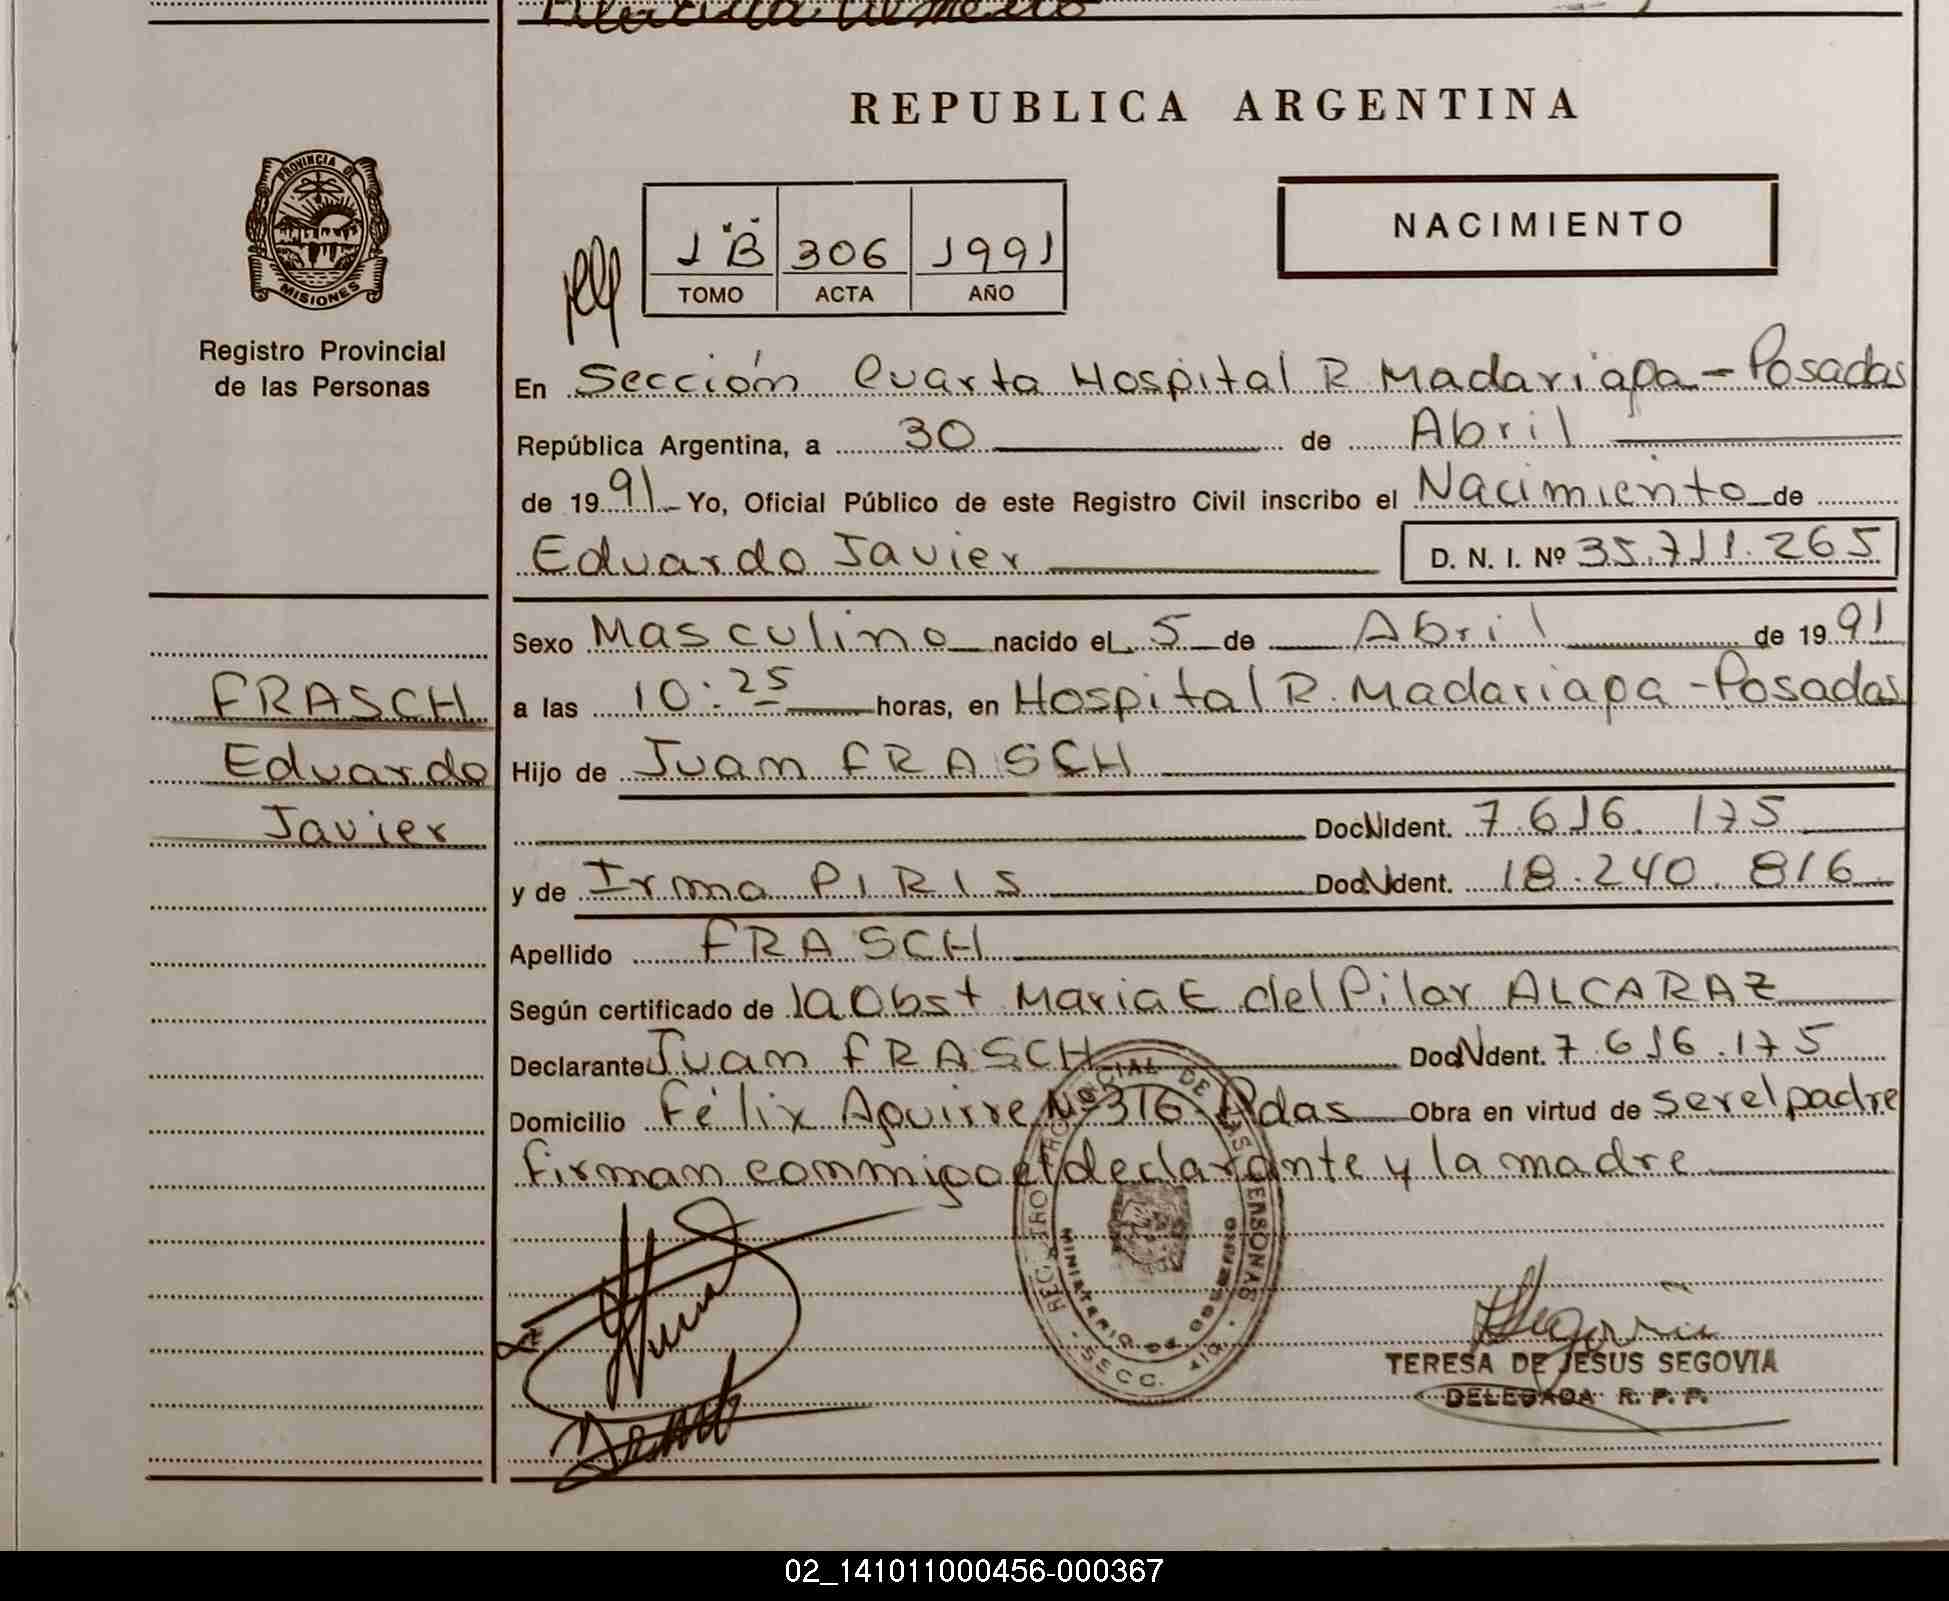 REPUBLICA ARGENTINA
PROVINCIA DE
MISIONES
Registro Provincial
de las Personas
1 "B" 306 1991
TOMO ACTA AÑO
NACIMIENTO
En Sección Cuarta Hospital R. Madariaga - Posadas
República Argentina, a 30 de Abril
de 1991 Yo, Oficial Público de este Registro Civil inscribo el Nacimiento de
Eduardo Javier D. N. I. Nº 35.711.265
FRASCH
Eduardo
Javier
Sexo Masculino nacido el 5 de Abril de 1991
a las 10:25 horas, en Hospital R. Madariaga - Posadas
Hijo de Juan FRASCH
Doc. N Ident. 7.616.175
y de Irma PIRIS Doc. N Ident. 18.240.816
Apellido FRASCH
Según certificado de la Obst Maria E del Pilar ALCARAZ
Declarante Juan FRASCH Doc. N Ident. 7.616.175
Domicilio Félix Aguirre Nº 316 - Pdas Obra en virtud de ser el padre
firman conmigo el declarante y la madre
REGISTRO PROVINCIAL DE LAS PERSONAS
MINISTERIO DE GOBIERNO
SECC. 4ta.
TERESA DE JESUS SEGOVIA
DELEGADA R. P. P.
02_141011000456-000367